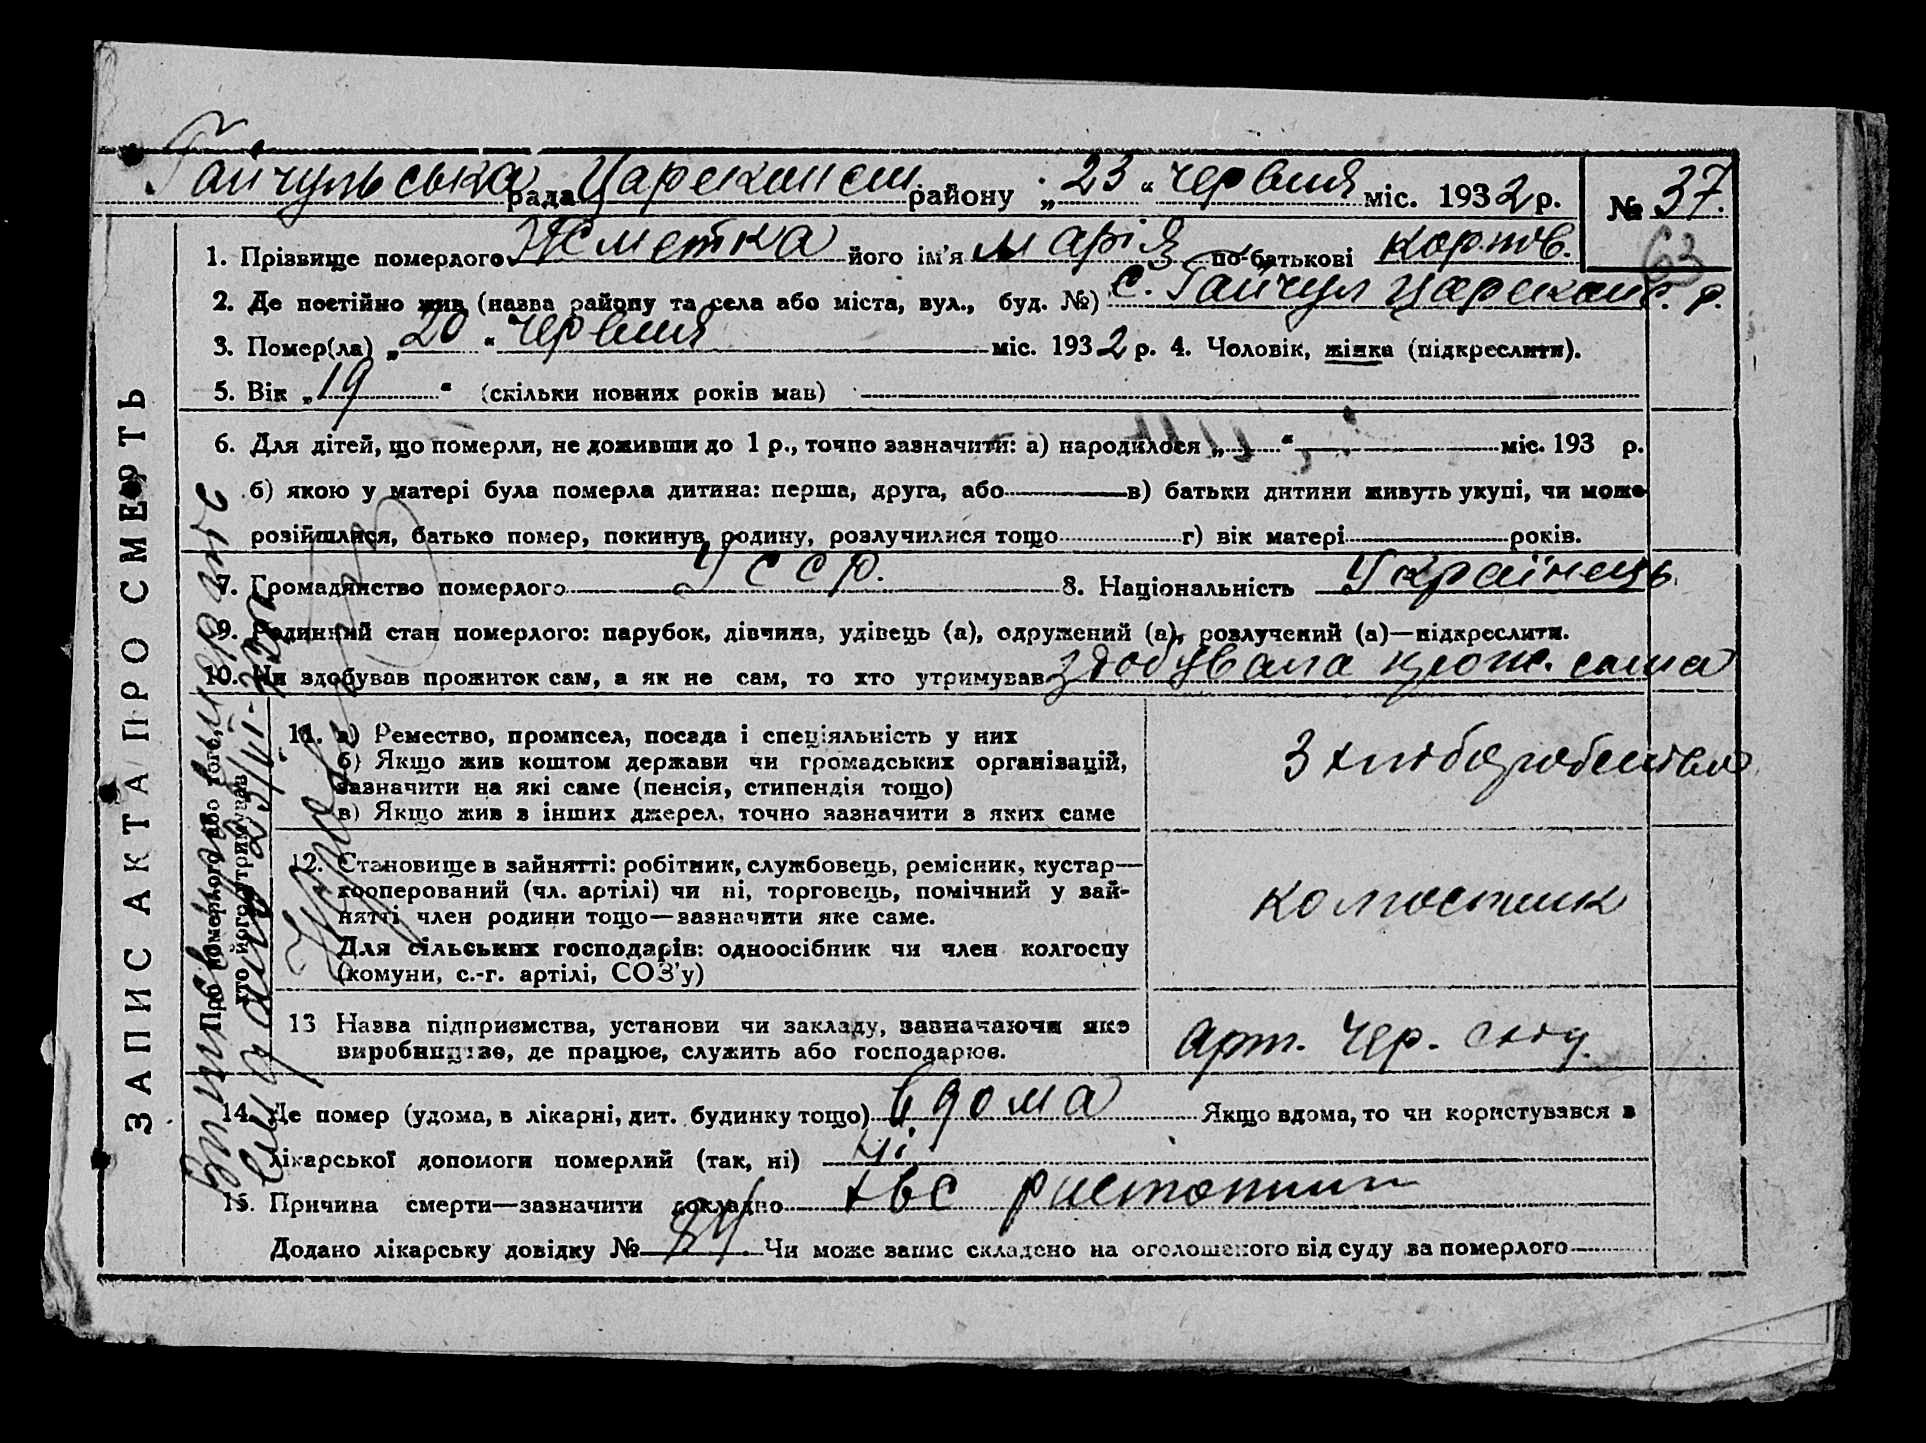 Гайчульська рада Царекон��ськ району „23“ червня міс. 1932 р. № 37.
63
1. Прізвище померлого Жметка його ім'я Марія по-батькові
2. Де постійно жив (назва району та села або міста, вул., буд. №) с. Гайчул р.
3. Помер(ла) „20“ червня міс. 1932 р. 4. Чоловік, жінка (підкреслити).
5. Вік „19“ (скільки повних років мав)
6. Для дітей, що померли, не доживши до 1 р., точно зазначити: а) народилося „ “ міс. 193 р.
б) якою у матері була померла дитина: перша, друга, або в) батьки дитини живуть укупі, чи може
розійшлися, батько помер, покинув родину, розлучилися тощо г) вік матері років.
7. Громадянство померлого УССР. 8. Національність Українець
9. Родинний стан померлого: парубок, дівчина, удівець (а), одружений (а), розлучений (а)—підкреслити.
10. Чи здобував прожиток сам, а як не сам, то хто утримував здобувала прож. сама
ЗАПИС АКТА ПРО СМЕРТЬ
Про померлого або того,
хто його утримував
11. а) Ремество, промисел, посада і спеціяльність у них
б) Якщо жив коштом держави чи громадських організацій,
зазначити на які саме (пенсія, стипендія тощо)
в) Якщо жив з інших джерел, точно зазначити з яких саме
З хліборобства
12. Становище в зайнятті: робітник, службовець, ремісник, кустар—
кооперований (чл. артілі) чи ні, торговець, помічний у зай-
нятті член родини тощо—зазначити яке саме.
Для сільських господарів: одноосібник чи член колгоспу
(комуни, с.-г. артілі, СОЗ'у)
колгоспник
13 Назва підприємства, установи чи закладу, зазначаючи яке
виробництво, де працює, служить або господарює.
арт. Чер.
14. Де помер (удома, в лікарні, дит. будинку тощо) вдома Якщо вдома, то чи користувався з
лікарської допомоги померлий (так, ні) ні
15. Причина смерти—зазначити докладно
Додано лікарську довідку № Чи може запис складено на оголошеного від суду за померлого